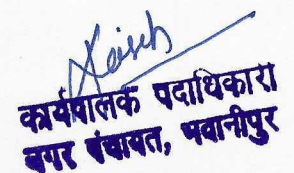 कार्यपालक पदाधिकारी
नगर पंचायत, भवानीपुर